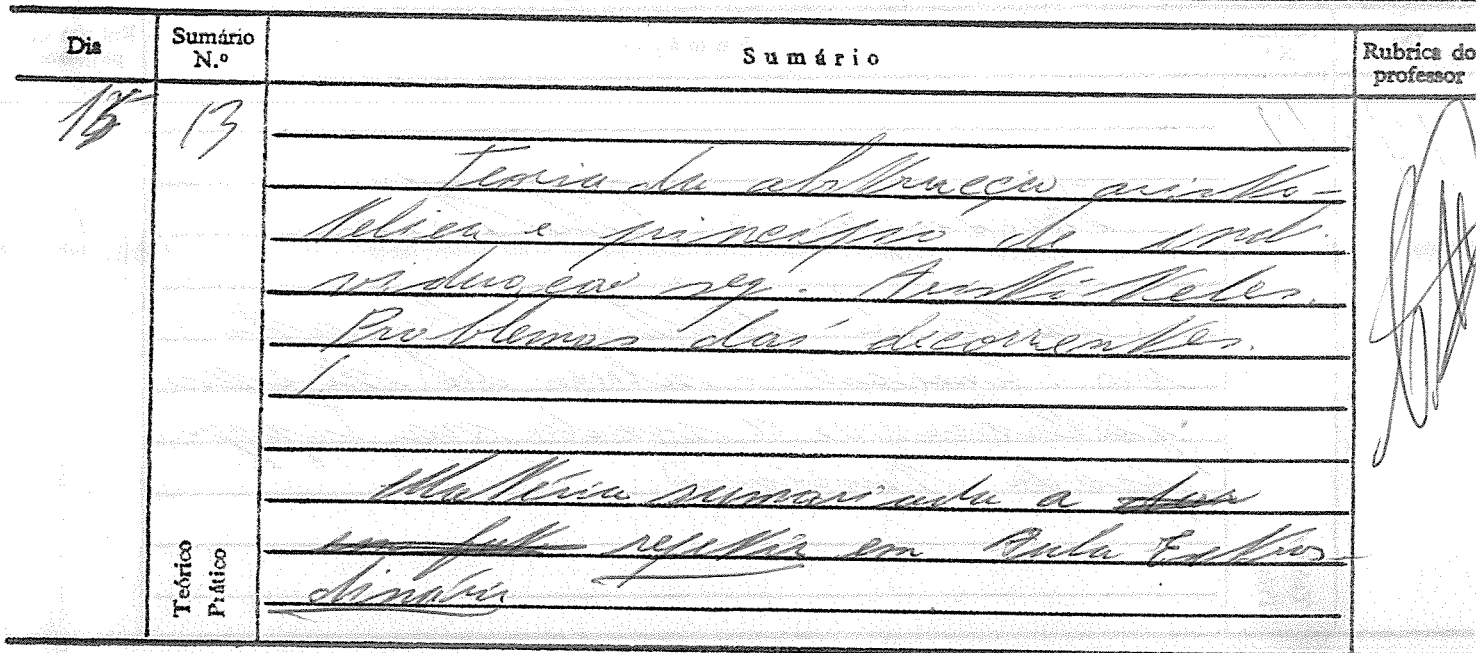 Dia
Sumário N.º
Sumário
Rubrica do professor
13
Teoria da abstracção aristo-
télica e princípio de indi-
viduação seg. Aristóteles.
Problemas daí decorrentes.
Matéria sumariada a dar
repetir em Aula Extraor-
dinária
Teórico
Prático